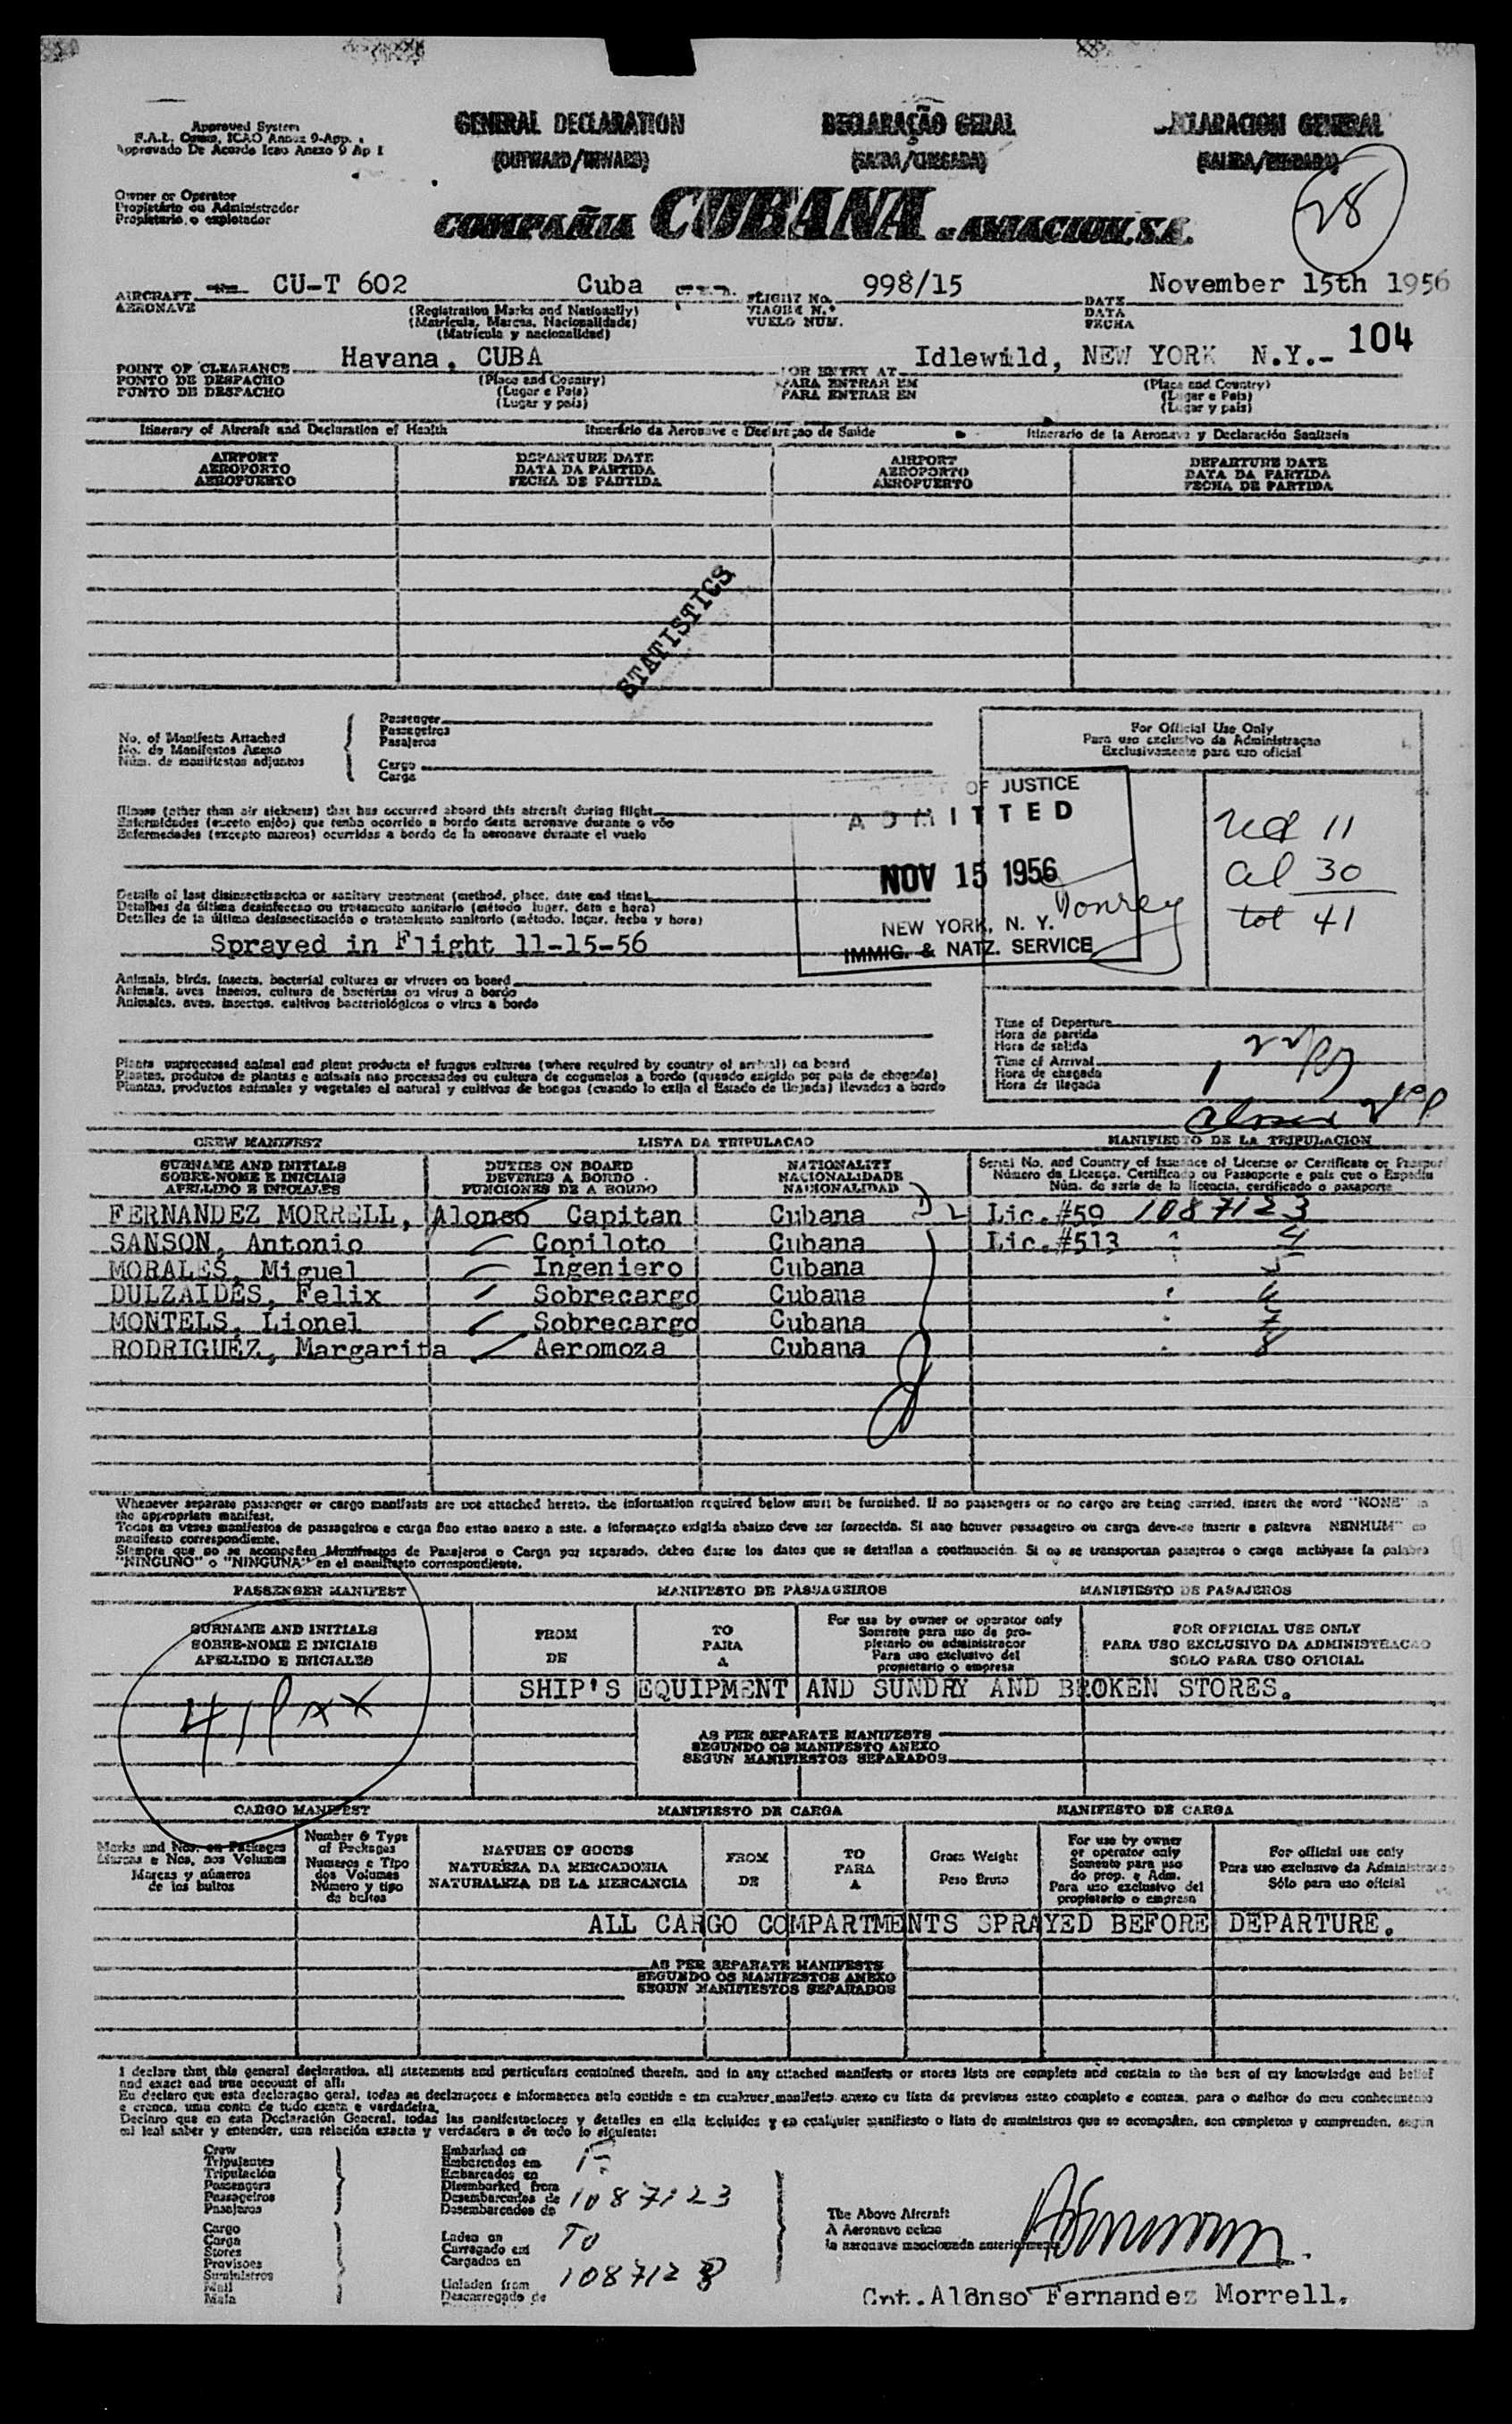 Approved System
F.A.L. Comm. ICAO Annex 9-App. 1
Approvado De Acordo Icao Anexo 9 Ap 1
GENERAL DECLARATION
(OUTWARD/INWARD)
DECLARAÇÃO GERAL
(SAIDA/CHEGADA)
DECLARACION GENERAL
(SALIDA/ENTRADA)
28
Owner or Operator
Propietário ou Administrador
Propietario o explotador
COMPAÑIA CUBANA DE AVIACION, S.A.
AIRCRAFT CU-T 602 Cuba
AERONAVE
(Registration Marks and Nationality)
(Matricula, Marcas, Nacionalidade)
(Matrícula y nacionalidad)
FLIGHT No. 998/15
VIAGEM N.º
VUELO NUM.
November 15th 1956
DATE
DATA
FECHA
104
POINT OF CLEARANCE Havana, CUBA
PONTO DE DESPACHO
PUNTO DE DESPACHO
(Place and Country)
(Lugar e Pais)
(Lugar y país)
FOR ENTRY AT Idlewild, NEW YORK N.Y.-
PARA ENTRAR EM
PARA ENTRAR EN
(Place and Country)
(Lugar e Pais)
(Lugar y país)
Itinerary of Aircraft and Declaration of Health
Itinerário da Aeronave e Declaração de Saúde
Itinerario de la Aeronave y Declaración Sanitaria
AIRPORT
AEROPORTO
AEROPUERTO
DEPARTURE DATE
DATA DA PARTIDA
FECHA DE PARTIDA
AIRPORT
AEROPORTO
AEROPUERTO
DEPARTURE DATE
DATA DA PARTIDA
FECHA DE PARTIDA
STATISTICS
No. of Manifests Attached
No. de Manifestos Anexo
Núm. de manifiestos adjuntos
Passenger
Passageiros
Pasajeros
Cargo
Carga
For Official Use Only
Para uso exclusivo da Administraçao
Exclusivamente para uso oficial
Illness (other than air sickness) that has occurred aboard this aircraft during flight
Enfermidades (exceto enjôo) que tenha ocorrido a bordo desta aeronave durante o vôo
Enfermedades (excepto mareos) ocurridas a bordo de la aeronave durante el vuelo
OF JUSTICE
ADMITTED
NOV 15 1956
NEW YORK, N. Y.
IMMIG. & NATZ. SERVICE
11
al 30
tot 41
Details of last disinsectisation or sanitary treatment (method, place, date and time)
Detalhes da última desinfecsao ou tratamento sanitario (método lugar, data e hora)
Detalles de la última desinsectización o tratamiento sanitario (método, lugar, fecha y hora)
Sprayed in Flight 11-15-56
Animals, birds, insects, bacterial cultures or viruses on board
Animais, aves insetos, cultura de bactérias ou virus a bordo
Animales, aves, insectos, cultivos bacteriológicos o virus a bordo
Time of Departure
Hora de partida
Hora de salida
Time of Arrival
Hora de chegada
Hora de llegada
Plants unprocessed animal and plant products of fungus cultures (where required by country of arrival) on board
Plantas, produtos de plantas e animais nao processados ou cultura de cogumelos a bordo (quando exigido por pais de chegada)
Plantas, productos animales y vegetales al natural y cultivos de hongos (cuando lo exija el Estado de llegada) llevados a bordo
CREW MANIFEST
LISTA DA TRIPULACAO
MANIFIESTO DE LA TRIPULACION
SURNAME AND INITIALS
SOBRE-NOME E INICIAIS
APELLIDO E INICIALES
DUTIES ON BOARD
DEVERES A BORDO
FUNCIONES DE A BORDO
NATIONALITY
NACIONALIDADE
NACIONALIDAD
Serial No. and Country of Issuance of License or Certificate or Passport
Número da Licença, Certificado ou Passaporte e pais que o Expediu
Núm. de serie de la licencia, certificado o pasaporte
FERNANDEZ MORRELL, Alonso Capitan Cubana D2 Lic.#59 1087123
SANSON, Antonio Copiloto Cubana Lic.#513 " 4
MORALES, Miguel Ingeniero Cubana 5
DULZAIDES, Felix Sobrecargo Cubana " 6
MONTELS, Lionel Sobrecargo Cubana " 7
RODRIGUEZ, Margarita Aeromoza Cubana " 8
Whenever separate passenger or cargo manifests are not attached hereto, the information required below must be furnished. If no passengers or no cargo are being carried, insert the word "NONE" in
the appropriate manifest.
Todas as vezes manifestos de passageiros e carga ñao estao anexo a este, a informaçao exigida abaixo deve ser fornecida. Si nao houver passageiro ou carga deve-se inserir a palavra NENHUM" no
manifesto correspondente.
Siempre que no se acompañen Manifiestos de Pasajeros o Carga por separado, deben darse los datos que se detallan a continuación. Si no se transportan pasajeros o carga inclúyase la palabra
"NINGUNO" o "NINGUNA" en el manifiesto correspondiente.
PASSENGER MANIFEST
MANIFESTO DE PASSAGEIROS
MANIFIESTO DE PASAJEROS
SURNAME AND INITIALS
SOBRE-NOME E INICIAIS
APELLIDO E INICIALES
FROM
DE
TO
PARA
A
For use by owner or operator only
Somente para uso de pro-
pietario ou administrador
Para uso exclusivo del
propietario o empresa
FOR OFFICIAL USE ONLY
PARA USO EXCLUSIVO DA ADMINISTRACAO
SOLO PARA USO OFICIAL
SHIP'S EQUIPMENT AND SUNDRY AND BROKEN STORES.
41 Pxx
AS PER SEPARATE MANIFESTS
SEGUNDO OS MANIFESTO ANEXO
SEGUN MANIFIESTOS SEPARADOS
CARGO MANIFEST
MANIFIESTO DE CARGA
MANIFESTO DE CARGA
Marks and Nos. on Packages
Marcas e Nos. nos Volumes
Marcas y números
de los bultos
Number & Type
of Packages
Numeros e Tipo
dos Volumes
Número y tipo
de bultos
NATURE OF GOODS
NATUREZA DA MERCADORIA
NATURALEZA DE LA MERCANCIA
FROM
DE
TO
PARA
A
Gross Weight
Peso Bruto
For use by owner
or operator only
Somente para uso
do prop. e Adm.
Para uso exclusivo del
propietario o empresa
For official use only
Para uso exclusivo da Administracao
Sólo para uso oficial
ALL CARGO COMPARTMENTS SPRAYED BEFORE DEPARTURE.
AS PER SEPARATE MANIFESTS
SEGUNDO OS MANIFESTOS ANEXO
SEGUN MANIFIESTOS SEPARADOS
I declare that this general declaration, all statements and particulars contained therein, and in any attached manifests or stores lists are complete and contain to the best of my knowledge and belief
and exact and true account of all:
Eu declaro que esta declaraçao geral, todas as declaraçoes e informacoes nela contida e em cualquer manifesto anexo ou lista de previsoes estao completo e contem, para o melhor do meu conhecimento
e crenca, uma conta de tudo exata e verdadeira.
Declaro que en esta Declaración General, todas las manifestaciones y detalles en ella incluidos y en cualquier manifiesto o lista de suministros que se acompañen, son completos y comprenden, según
mi leal saber y entender, una relación exacta y verdadera a de todo lo siguiente:
Crew
Tripulantes
Tripulación
Passengers
Passageiros
Pasajeros
Embarked on
Embarcados em
Embarcados en
Disembarked from
Desembarcados de
Desembarcados de
F-
1087123
Cargo
Carga
Stores
Provisoes
Suministros
Mail
Mala
Laden on
Carregado em
Cargados en
Unladen from
Descarregado de
To
1087128
The Above Aircraft
A Aeronave acima
la aeronave mencionada anteriormente
Cpt. Alonso Fernandez Morrell.